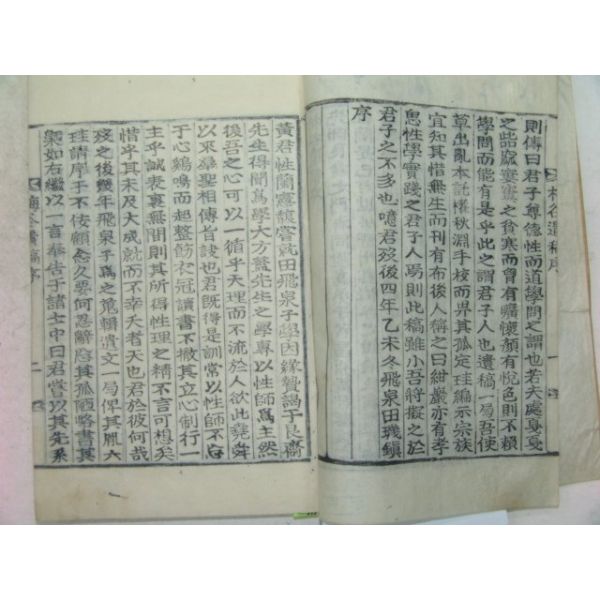 則傳曰君子尊德性而道學問之謂也若夫處
之詣寢寒之食寒而嘗有曠懷顔有悅色則不賴
學問而能有是乎此之謂君子人也遺稿一局吾使
草出亂本託權秋淵手校而畀其孤定珪編示宗族
宜知其惜無生而刊有布後人稱之曰紺巖亦有孝
思性學實踐之君子人焉則此稿雖小吾將擬之於
君子之不多也噫君歿後四年乙未冬飛泉田璣鎭
序
谷遺稿序
一
黃君性蘭馥嘗就田飛泉子學因緣贄謁于艮齋
先生得聞爲學大方蓋先生之學專以性師爲主然
後吾之心可以一循乎天理而不流於人欲此堯舜
以來羣聖相傳旨訣也君旣得是訓常以性師不
于心鷄鳴而起整飭衣冠讀書不撤其立心制行一
主乎誠表裏無間則其所得性理之精不言可想矣
惜乎其未及大成就而不幸夭者天也君於彼何哉
歿之後幾年飛泉子爲之蒐輯遺文一局俾其胤六
珪請序于不侫顧念久要何忍辭忘其孤陋略書其
槩如右繼以一言奉告于諸士中曰君嘗以其先系
稿序
二